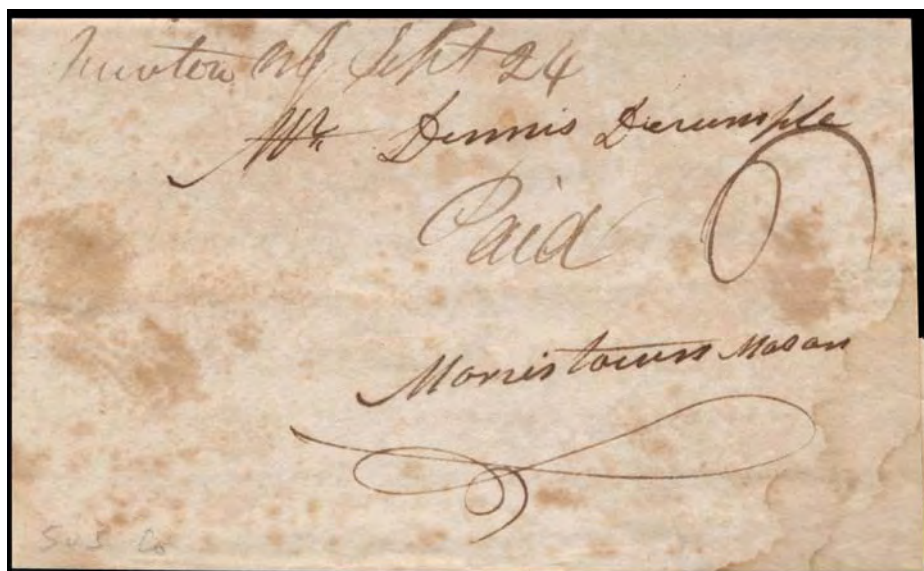 Newton NJ Sept 24
Mr Dennis Derumple
Paid 6
Morristown Mason
SUS Co